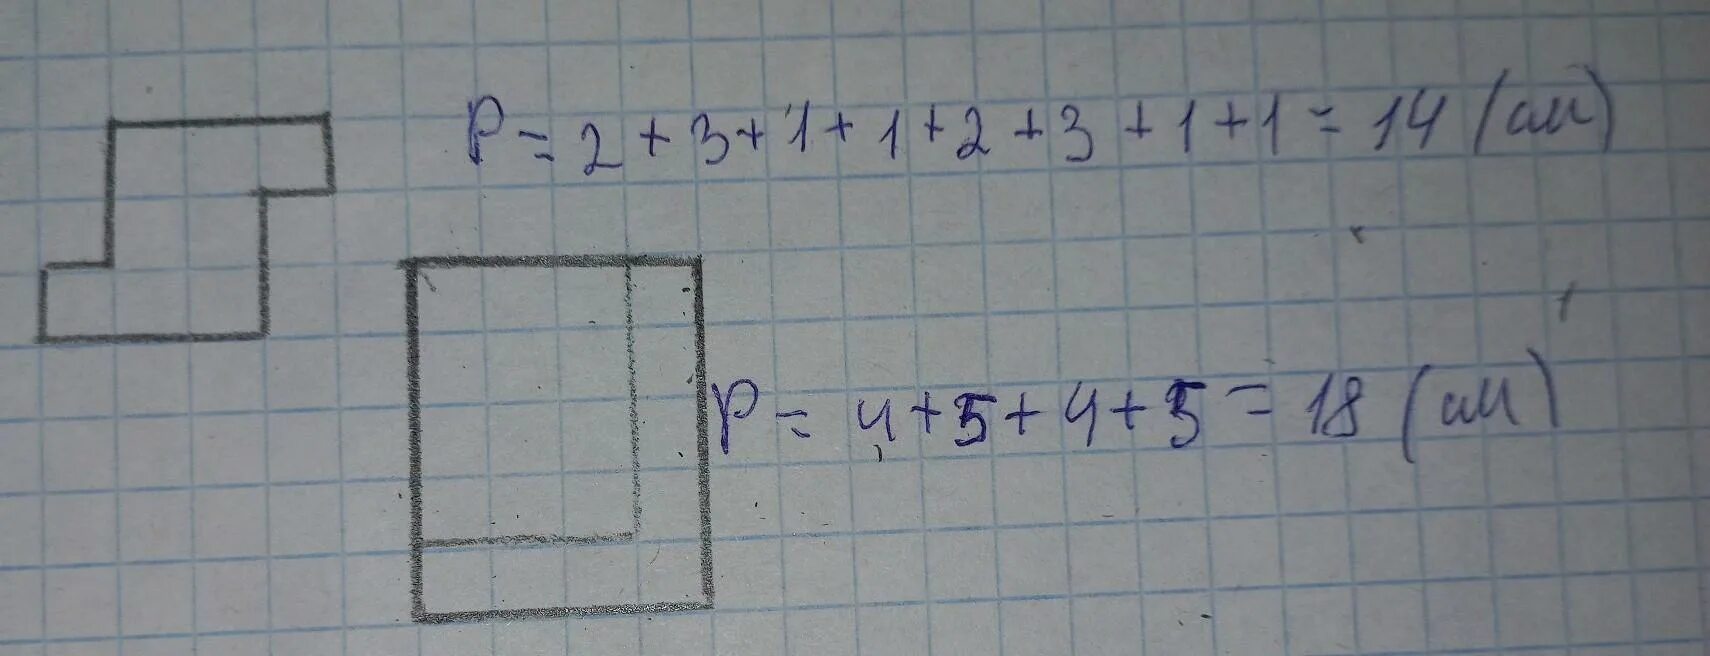 P = 2 + 3 + 1 + 1 + 2 + 3 + 1 + 1 = 14 (см)
P = 4 + 5 + 4 + 5 = 18 (см)